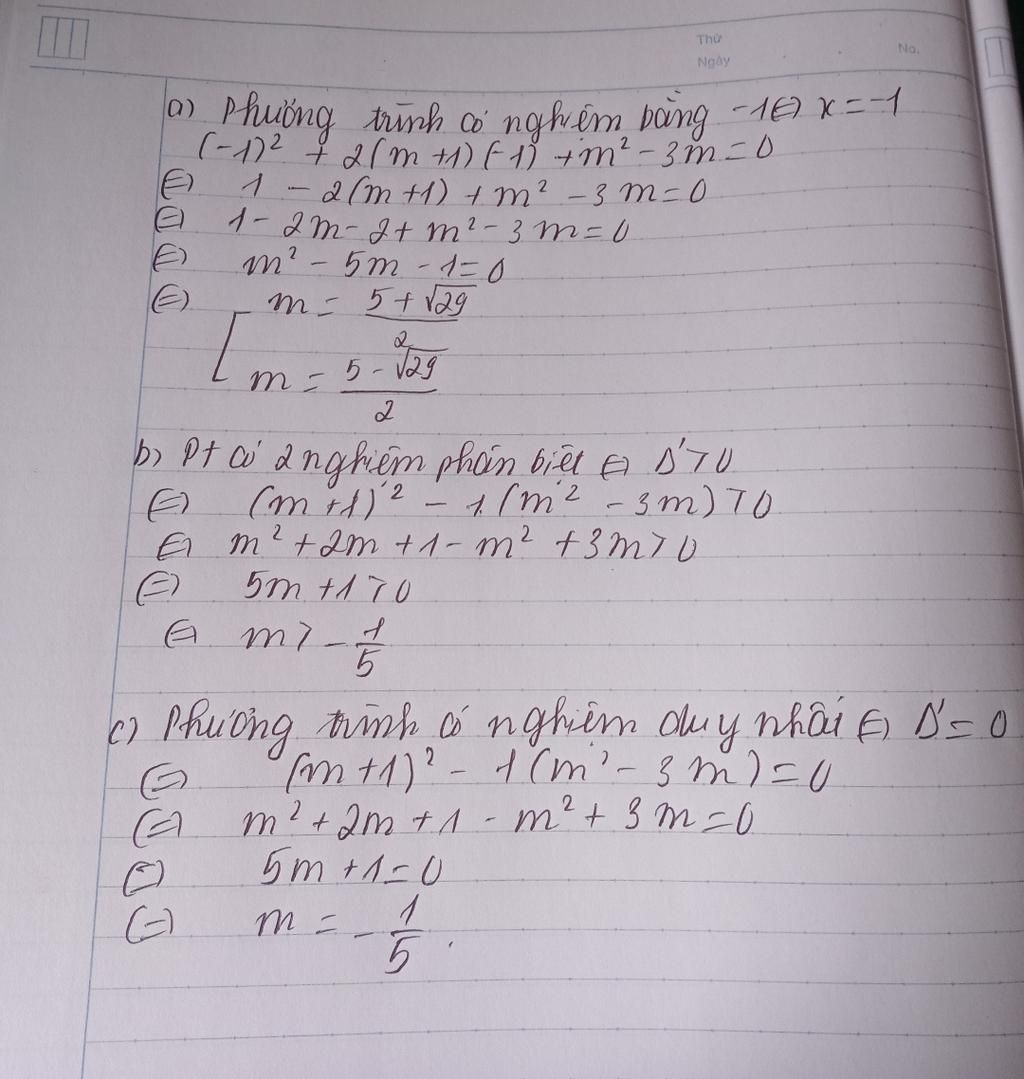 Thứ
Ngày
No.
a) Phương trình có nghiệm bằng -1 ⇔ x = -1
(-1)² + 2(m+1)(-1) + m² - 3m = 0
⇔ 1 - 2(m+1) + m² - 3m = 0
⇔ 1 - 2m - 2 + m² - 3m = 0
⇔ m² - 5m - 1 = 0
⇔ [ m = (5 + √29)/2
m = (5 - √29)/2
b) Pt có 2 nghiệm phân biệt ⇔ Δ' > 0
⇔ (m+1)² - 1.(m² - 3m) > 0
⇔ m² + 2m + 1 - m² + 3m > 0
⇔ 5m + 1 > 0
⇔ m > -1/5
c) Phương trình có nghiệm duy nhất ⇔ Δ' = 0
⇔ (m+1)² - 1(m² - 3m) = 0
⇔ m² + 2m + 1 - m² + 3m = 0
⇔ 5m + 1 = 0
⇔ m = -1/5.